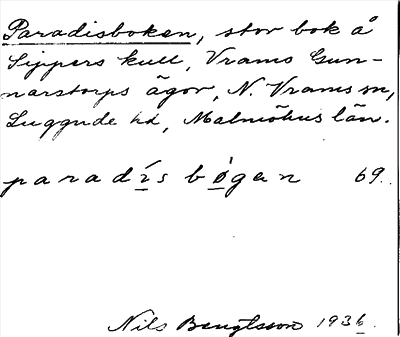 Paradisboken, stor bok å
Sippers kull, Vrams Gun-
narstorps ägor, N. Vrams sn,
Luggude hd, Malmöhus län.
paradís bǿgen 69.
Nils Bengtsson 1936.